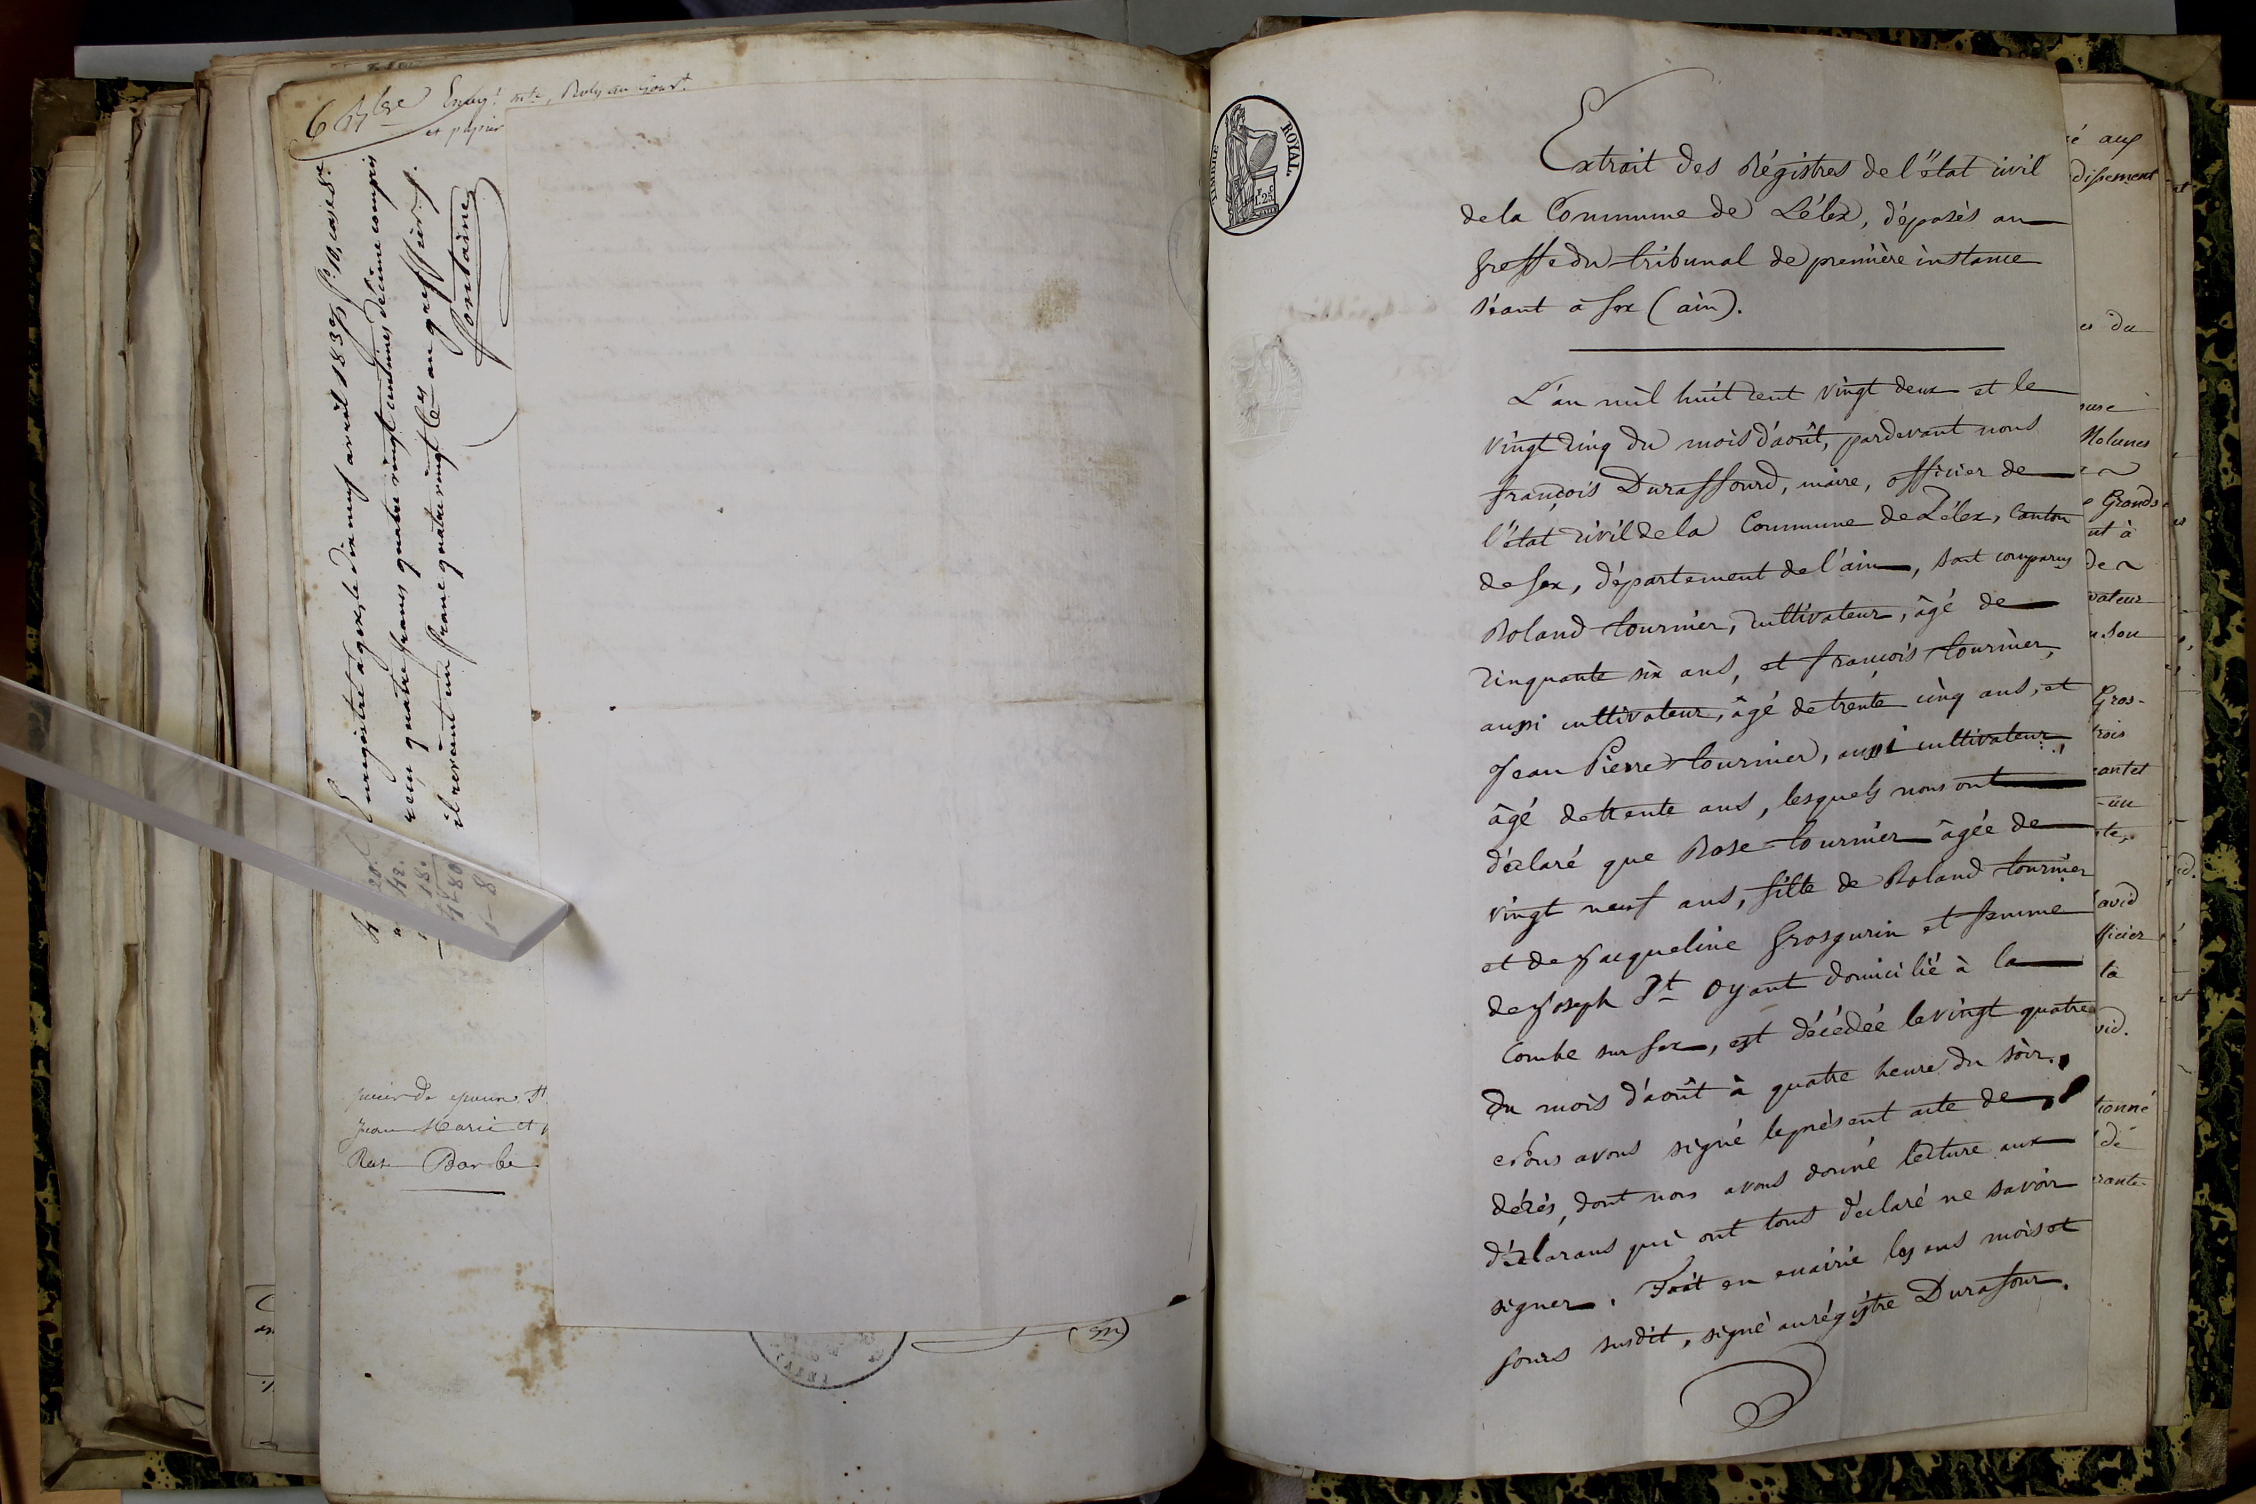 6 9bre Enreg.t
et papier
Enregistré à gex, le dix neuf avril 1837 f.o 10, case 8.e
reçu quatre francs quatre vingt centimes, décime compris
il revient un franc quatre vingt c.es au greffier.
fontaine
4. 20.
42.
18.
4-80
1-8
Jean Marie et
Rose Barbe
TIMBRE ROYAL.
1.F 25.C
Extrait des Régistres de l'état civil
de la Commune de Lélex, déposés au
Greffe du tribunal de première instance
séant à Gex (ain).
L'an mil huit cent vingt deux et le
vingt cinq du mois d'août, pardevant nous
françois Duraffourd, maire, officier de
l'état civil de la Commune de Lélex, Canton
de Gex, département de l'ain, sont comparus
Roland tournier, cultivateur, âgé de
cinquante six ans, et françois tournier,
aussi cultivateur, âgé de trente cinq ans, et
Jean Pierre tournier, aussi cultivateur,
âgé de trente ans, lesquels nous ont
déclaré que Rose tournier âgée de
vingt neuf ans, fille de Roland tournier
et de Jacqueline Grosgurin et femme
de Joseph St Oyant domicilié à la
Combe sur Gex, est décédée le vingt quatre
du mois d'août à quatre heure du soir.
Nous avons signé le présent acte de
décés, dont nous avons donné lecture aux
déclarans qui ont tous déclaré ne savoir
signer. Fait en mairie les ans mois et
jours susdit, signé au régistre Durafour.
é aux
dissement
es du
Molunes
Grands
nt à
de
vateur
Gros-
trois
antet
un
te,
avid
fficier
la
vid.
tionné
dé
rante